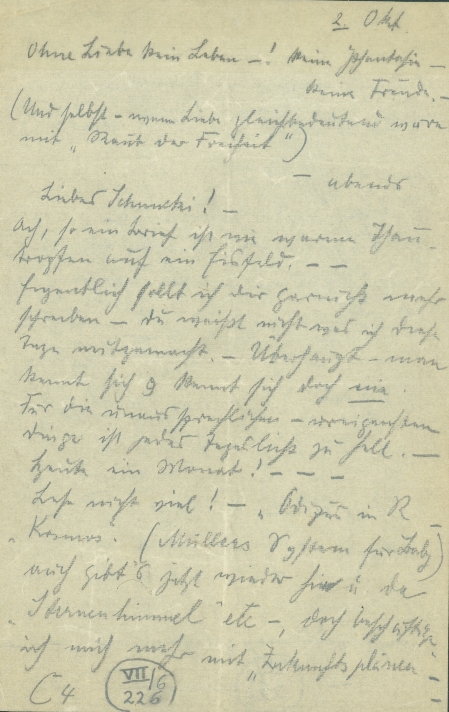 2. Okt.
Ohne Liebe kein Leben –! keine Phantasie –
keine Freude. –
(Und selbst – wenn Liebe gleichbedeutend wäre
mit „Raub der Freiheit")
– abends
Liebes Schnucki! –
Ach, so ein Brief ist wie warme Thau-
tropfen auf ein Eisfeld. – –
Eigentlich sollt ich dir garnicht mehr
schreiben – du weißt nicht was ich diese
Tage mitgemacht. – Überhaupt – man
kennt sich & kennt sich doch nie.
Für die unaussprechlichen – ureigensten
Dinge ist jedes Tageslicht zu hell. –
Heute ein Monat! – – –
Lese nicht viel! – „Ödipus in R –
„Kosmos". (Müllers System für)
auch gibt's jetzt wieder hie u. da
„Sternenhimmel" etc –, doch beschäftige
ich mich mehr mit „Zukunftsplänen –
C 4
VII/6
226